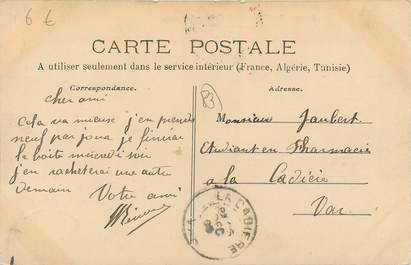 6 €
CARTE POSTALE
A utiliser seulement dans le service intérieur (France, Algérie, Tunisie)
Correspondance.
Adresse.
cher ami
Cela va mieux j'en prends
neuf par jour je finirai
la boite mercredi soir
j'en racheterai une autre
demain
Votre ami
B
Monsieur Jaubert
Etudiant en Pharmacie
a la Cadière
Var
LA CADIERE